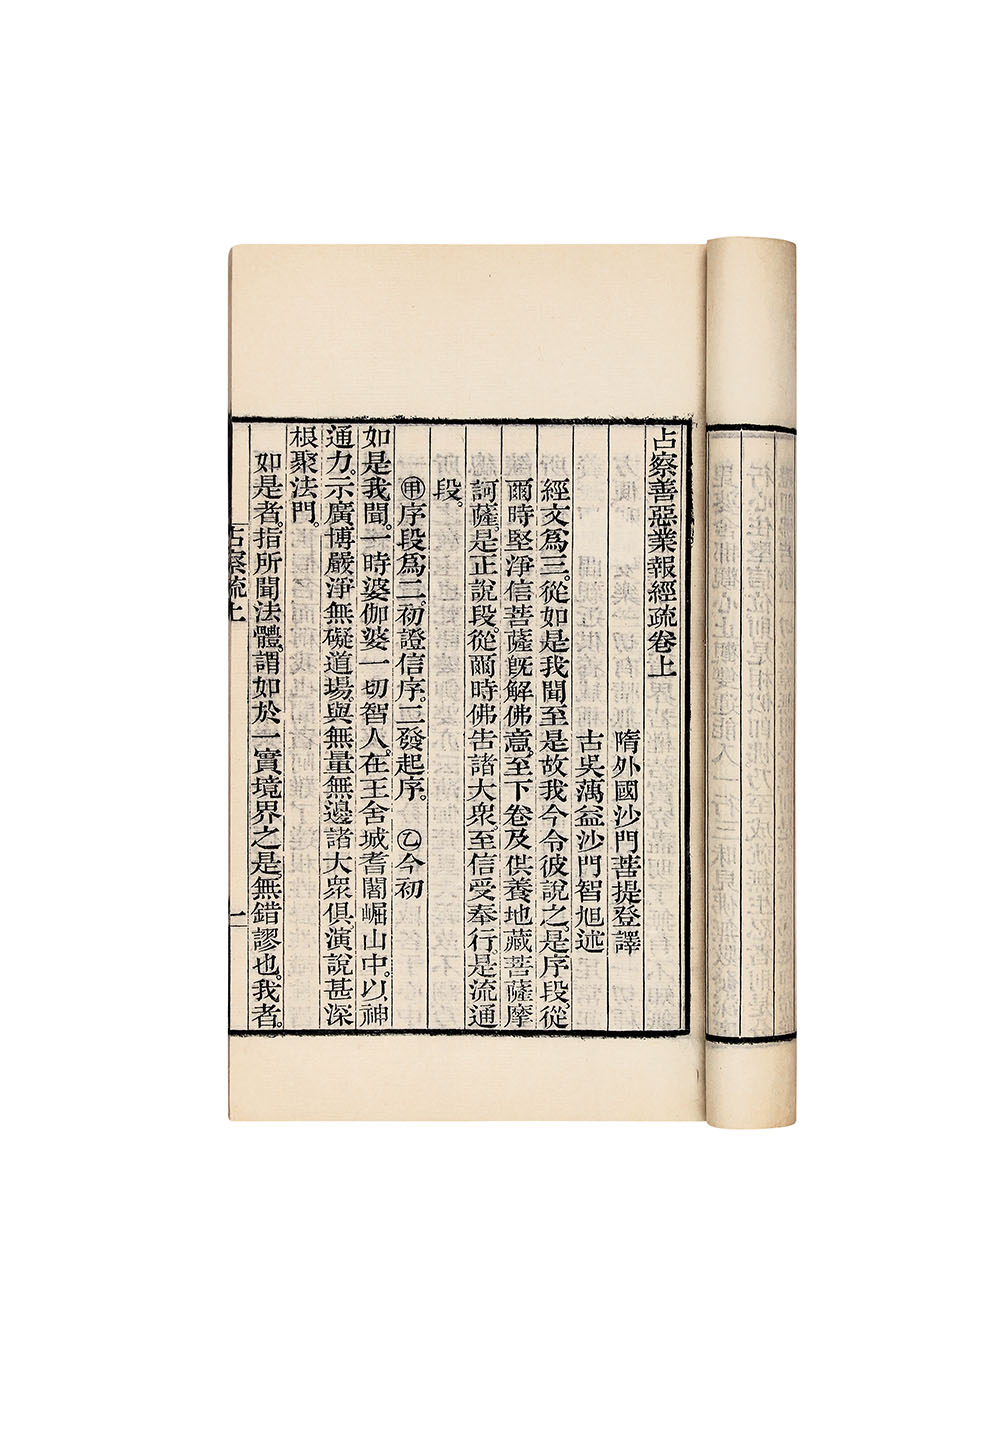 占察善惡業報經疏卷上
隋外國沙門菩提登譯
古吳蕅益沙門智旭述
經文爲三。從如是我聞。至是故我今令彼說之。是序段。從
爾時堅淨信菩薩旣解佛意。至下卷及供養地藏菩薩摩
訶薩。是正說段。從爾時佛告諸大衆。至信受奉行。是流通
段。
㊙序段爲二。初證信序。二發起序。 乙今初
如是我聞。一時婆伽婆一切智人。在王舍城耆闍崛山中。以神
通力。示廣博嚴淨無礙道場。與無量無邊諸大衆俱。演說甚深
根聚法門。
如是者。指所聞法體。謂如於一實境界之是。無錯謬也。我者。
占察疏上
一